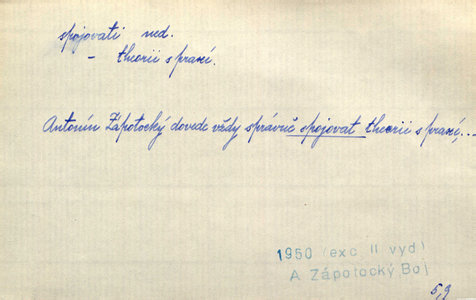 spojovati ned.
— theorii s praxí.
Antonín Zápotocký dovede vždy správně spojovat theorii s praxí,...
1950 (exc II vyd)
A Zápotocký Boj
5,9